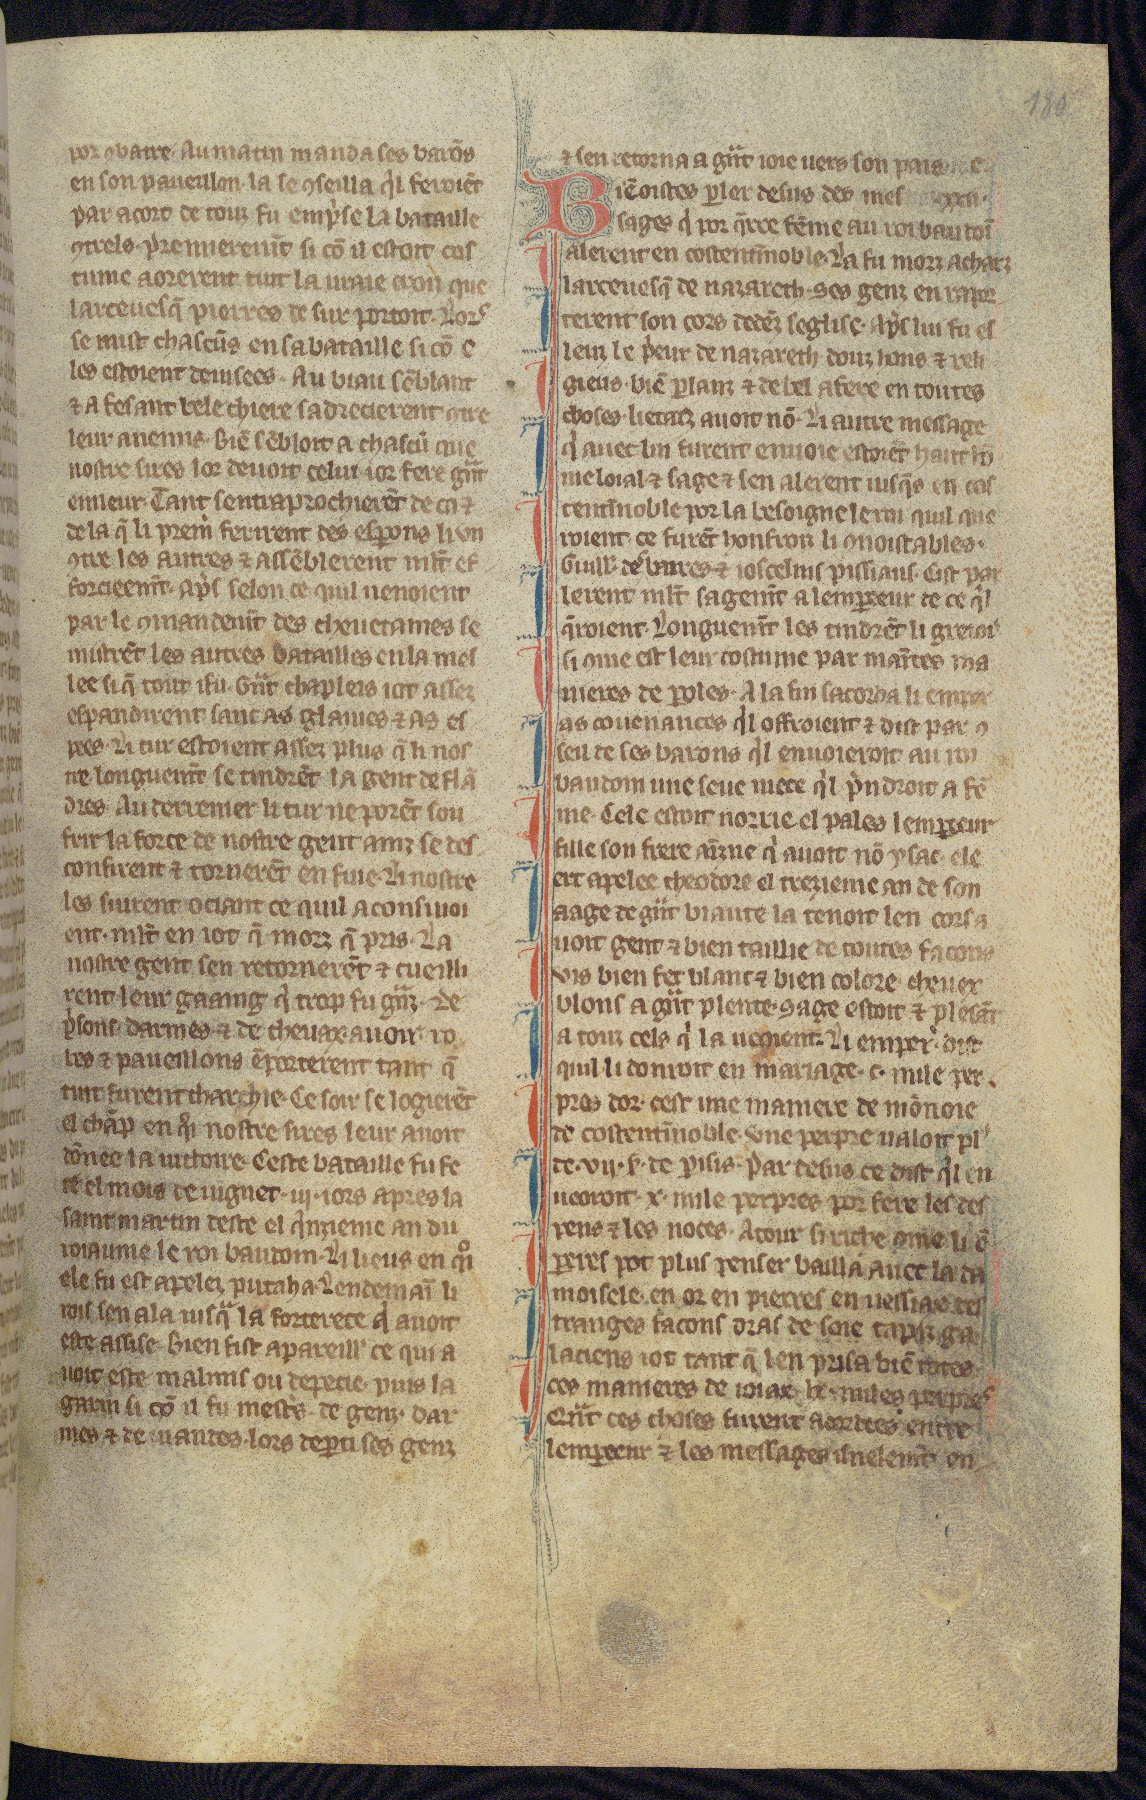 180
por ꝯbatre. Au matin manda ses barōs
en son paveillon. la se ꝯseilla q̇l feroiēt
par acort de touz fu emp̍se la bataille
ꝯtrels. p̍remierem̄t si cō il estoit cos
tume aorerent tuit la uraie croiz que
larceuesq̄ pierres de sur portoit. Lors
se mist chascūs en sa bataille si cō e
les estoient deuisees. Au biau sēblant
⁊ a fesant bele chiere sadrecierent ꝯtre
leur anemis. Biē sēbloit a chascū que
nostre sires lor deuoit celui ior fere gn̄t
enneur. Tant sentraprochierēt de ca ⁊
de la q̄ li prem̍ ferirent des esꝑons li vn
ꝯtre les autres ⁊ assēblerent ml̄t ef
forcieem̄t. Ap̍s selon ce quil uenoient
par le ꝯmandem̄t des cheuetaines se
mistrēt les autres batailles en la mes
lee si q̄ tout i fu. Gn̄t chapleis iot assez
espandirent sanc as glaiues ⁊ as es
pees. Li tur estoient assez plus q̄ li nos
tre longuem̄t se tindrēt la gent de flā
dres. Au derrenier li tur ne porēt sou
frir la force de nostre gent ainz se des
confirent ⁊ tornerēt en fuie. Li nostre
les suirent ociant ce quil aconsiuoi
ent. ml̄t en iot q̄ morz q̄ pris. La
nostre gent sen retornerēt ⁊ cueilli
rent leur gaaing q̍ trop fu gn̄z. De
p̍sons. darmes ⁊ de cheuax auoir ro
bes ⁊ paueillons ēporterent tant q̄
tuit furent charchie. Ce soir se logierēt
el chāp en q̍ nostre sires leur auoit
dōnee la uictoire. Ceste bataille fu fe
te el mois de iugnet .iij. iors apres la
saint martin deste el q̍nzieme an du
roiaume le roi baudoin. Li lieus en q̍
ele fu est apelez putaha. Lendemaī li
rois sen ala iusq̍ la forterece q̍ auoit
este assise. Bien fist apareill̍ ce qui a
uoit este malmis ou depecie. puis la
garni si cō il fu mest̄s. de genz. dar
mes ⁊ de uiandes. lors deꝑti ses genz
⁊ sen retorna a gn̄t ioie uers son pais.
Biē oistes ꝑler desus des mes
sages q̍ por q̄rre fēme au roi baudoī
alerent en costentinnoble. La fu morz acharz
larceuesq̄ de nazareth. Ses genz en rapor
terent son cors dedēz seglise. Ap̍s lui fu es
leuz le p̍eur de nazareth douz hons ⁊ reli
gieus. biē ꝑlanz ⁊ de bel afere en toutes
choses. lietarz auoit nō. Li autre message
q̍ auec lui furent enuoie estoiēt haut hō
me loial ⁊ sage ⁊ sen alerent iusq̄s en cos
tentinnoble por la besoigne le roi quil que
roient. ce furēt honfroiz li ꝯnoistables.
Guill̍ de barres ⁊ ioscelins pissiaus. Cist par
lerent ml̄t sagem̄t a lempereeur de ce q̍l
q̄roient. Longuem̄t les tindrēt li grezoi
si ꝯme est leur costume par maītes ma
nieres de ꝑoles. A la fin sacorda li emper
as couenances q̍l offroient ⁊ dist par ꝯ
seil de ses barons q̍l enuoieroit au roi
baudoin une seue niece q̍l p̍ndroit a fē
me. Cele estoit norrie el pales lempereeur
fille son frere aīzne q̍ auoit nō ysac. ele
ert apelee theodore el trezieme an de son
aage de gn̄t biaute la tenoit len cors a
uoit gent ⁊ bien taillie de toutes facons
vis bien fet blanc ⁊ bien colore. cheuex
blons a gn̄t plente. Sage estoit ⁊ plesāt
a touz cels q̍ la ueoient. Li emper̍. dist
quil li donroit en mariage .c. mile per
pres dor. cest une maniere de mōnoie
de costentinnoble. Vne perpre ualoit pl̍
de .vij. s̄. de ꝑisis. Par desus ce dist q̍l en
ueoroit .x. mile perpres por fere les des
pens ⁊ les noces. Atour si riche ꝯme li ē
ꝑeres pot plus penser bailla auec la da
moisele. en or en pierres en uessiax des
tranges facons dras de soie tapiz ga
laciens iot tant q̄ len prisa biē totes
ces manieres de ioiax .lx. miles perpres
Qn̄t ces choses furent acordees entre
lempereeur ⁊ les messages isnelem̄t en